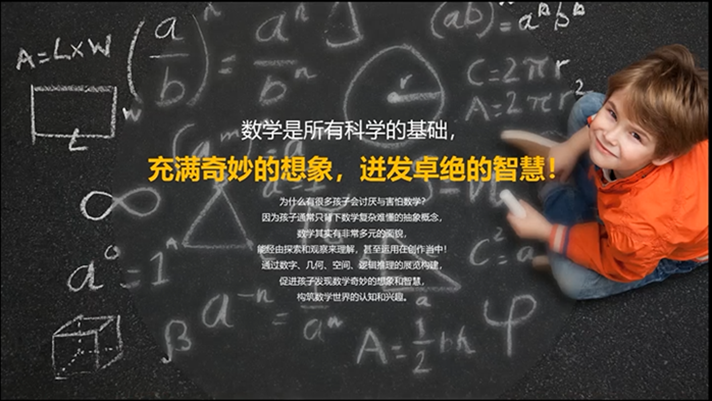 数学是所有科学的基础，
充满奇妙的想象，迸发卓绝的智慧！
为什么有很多孩子会讨厌与害怕数学？
因为孩子通常只背下数学复杂难懂的抽象概念，
数学其实有非常多元的面貌，
能经由探索和观察来理解，甚至运用在创作当中！
通过数字、几何、空间、逻辑推理的展览构建，
促进孩子发现数学奇妙的想象和智慧，
构筑数学世界的认知和兴趣。
A=L×W
W
L
(a/b)ⁿ = aⁿ/bⁿ
r
C=2πr
A=2πr²
∞
a⁰=1
β
A=½bh
φ